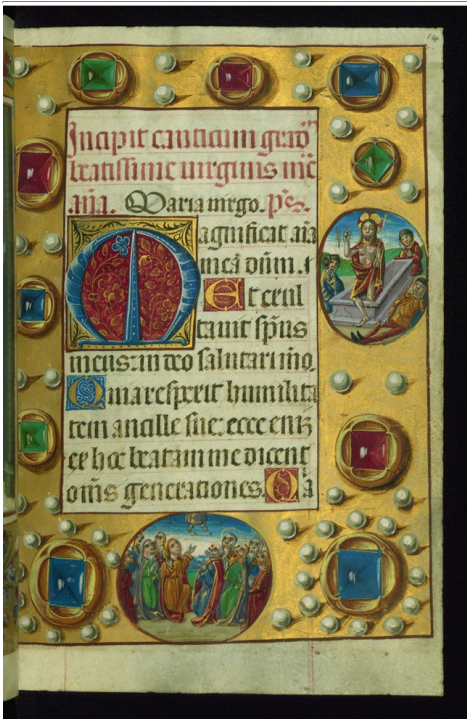 14
Incipit canticum grão
beatissime virginis mē
aña. Maria virgo. ps.
Magnificat aīa
mea dūm. t
Et exul
tavit spūs
meus: in deo salutari mō.
Quia respexit humilita
tem ancille sue: ecce enī
ex hoc beatam me dicent
oms̄ generationes. Q̄a